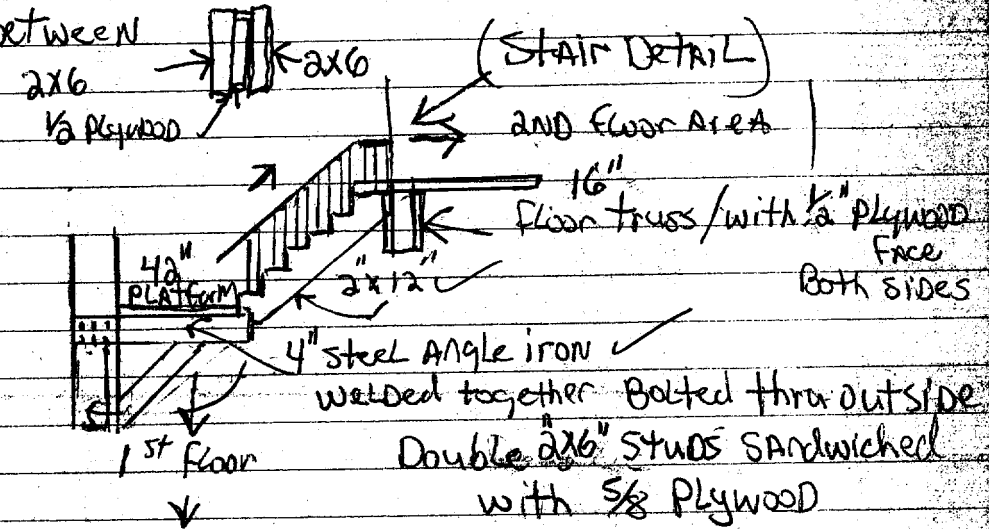 between
2x6
2x6
1/2 Plywood
(Stair Detail)
2nd Floor Area
16"
Floor truss/with 1/2" Plywood
Face
Both Sides
42"
Platform
2"x12"
4" Steel Angle iron
Welded together Bolted thru outside
Double "2x6" Studs Sandwiched
with 5/8 Plywood
1st Floor